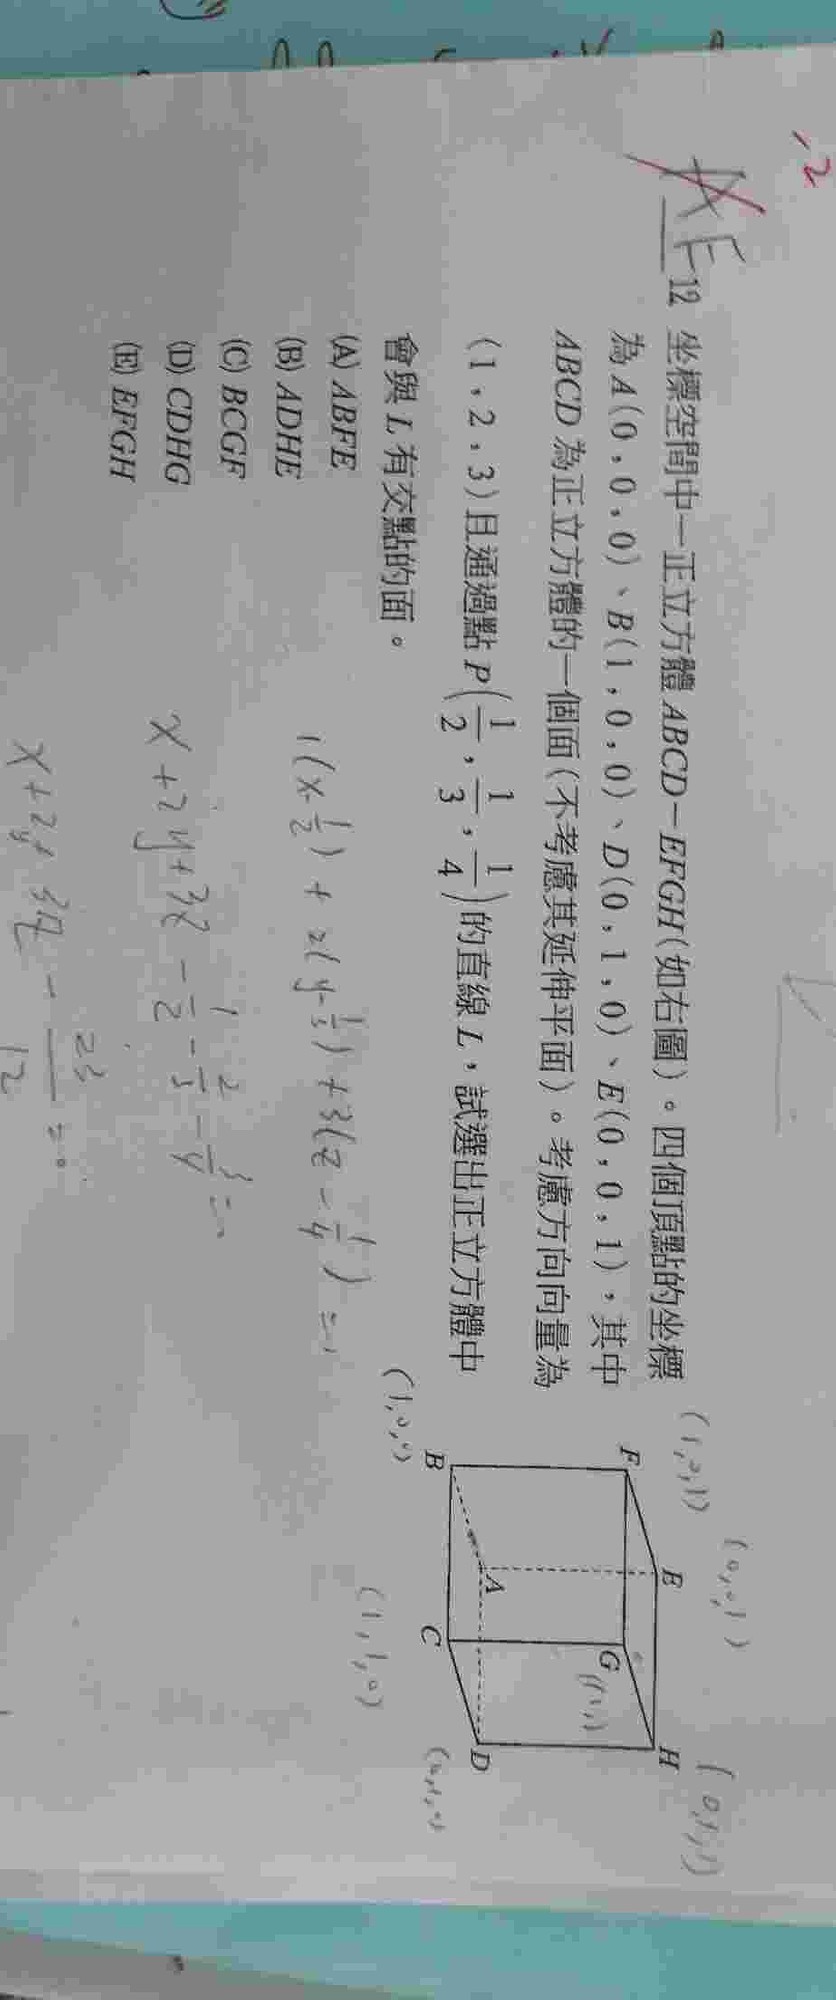 12
AE
12. 坐標空間中一正立方體 ABCD-EFGH(如右圖)。四個頂點的坐標
為 A(0,0,0)、B(1,0,0)、D(0,1,0)、E(0,0,1),其中
ABCD 為正立方體的一個面(不考慮其延伸平面)。考慮方向向量為
(1,2,3)且通過點 P(1/2,1/3,1/4)的直線 L,試選出正立方體中
會與 L 有交點的面。
(A) ABFE
(B) ADHE
(C) BCGF
(D) CDHG
(E) EFGH
(1,0,1)
(0,0,1)
(0,1,1)
F
E
H
G
(1,1,1)
A
B
C
D
(1,0,0)
(1,1,0)
(0,1,0)
1(x-1/2)+2(y-1/3)+3(z-1/4)=
x+2y+3z-1/2-2/3-3/4=
x+2y+3z-23/12=0